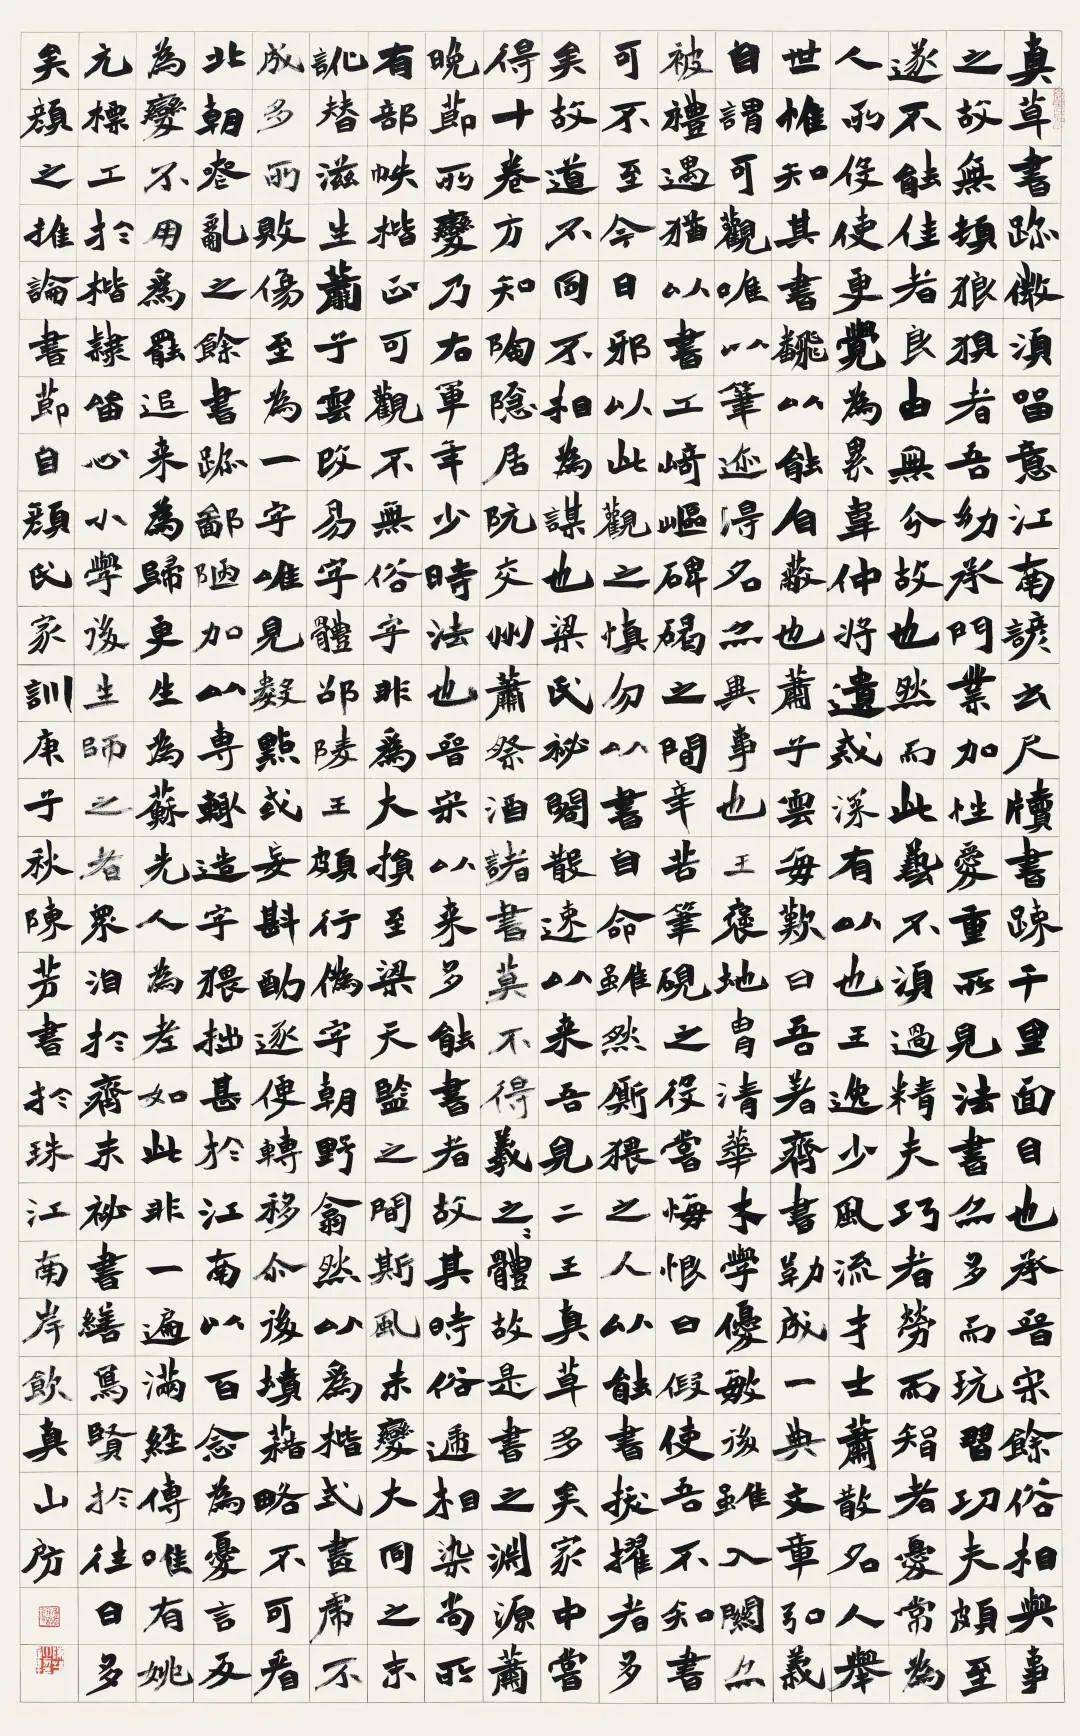 真草書跡微須留意江南諺云尺牘書踈千里面目也承晉宋餘俗相與事
之故無頓狼狽者吾幼承門業加性愛重所見法書亦多而玩習功夫頗至
遂不能佳者良由無分故也然而此藝不須過精夫巧者勞而智者憂常為
人所役使更覺為累韋仲將遺戒深有以也王逸少風流才士蕭散名人舉
世惟知其書飜以能自蔽也蕭子雲每歎曰吾著齊書勒成一典文章弘義
自謂可觀唯以筆迹得名亦異事也王褒地冑清華才學優敏後雖入關亦
被禮遇猶以書工崎嶇碑碣之間辛苦筆硯之役嘗悔恨曰假使吾不知書
可不至今日邪以此觀之慎勿以書自命雖然廝猥之人以能書拔擢者多
矣故道不同不相為謀也梁氏祕閣散速以来吾見二王真草多矣家中嘗
得十卷方知陶隱居阮交州蕭祭酒諸書莫不得羲之之體故是書之淵源蕭
晚節所變乃右軍年少時法也晉宋以来多能書者故其時俗遞相染尚所
有部帙楷正可觀不無俗字非為大損至梁天監之間斯風未變大同之末
訛替滋生蕭子雲改易字體邵陵王頗行偽字朝野翕然以為楷式畫虎不
成多所敗傷至為一字唯見數點或妄斟酌逐便轉移尒後墳籍略不可看
北朝喪亂之餘書跡鄙陋加以專輒造字猥拙甚於江南以百念為憂言反
為變不用為罷追来為歸更生為蘇先人為老如此非一遍滿經傳唯有姚
元標工於楷隸留心小學後生師之者眾洎於齊末祕書繕寫賢於往日多
矣顏之推論書節自顏氏家訓庚子秋陳芳書於珠江南岸飲真山房